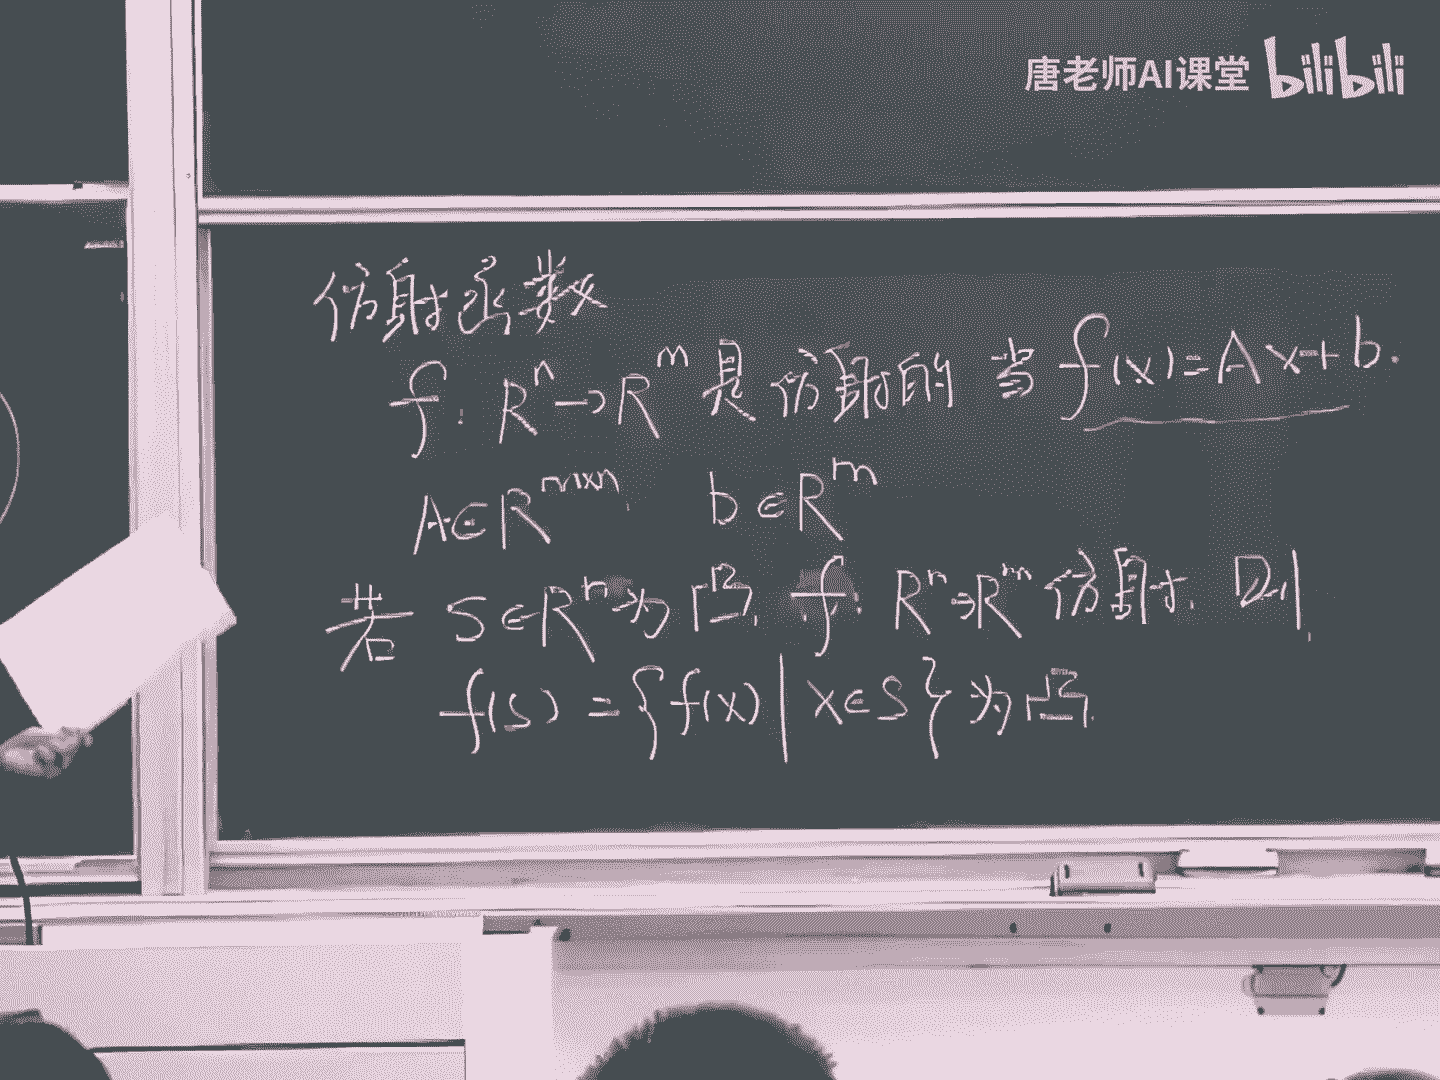 唐老师AI课堂 bilibili
仿射函数
f: Rⁿ→Rᵐ 是仿射的 当 f(x)=Ax+b.
A∈Rᵐˣⁿ, b∈Rᵐ
若 S∈Rⁿ为凸, f: Rⁿ→Rᵐ 仿射, 则,
f(S)={f(x)|x∈S}为凸.